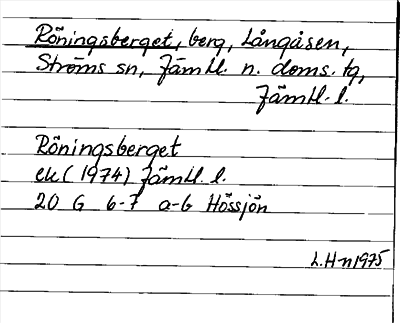 Röningsberget, berg, Långåsen,
Ströms sn, Jämtl. n. doms. tg,
Jämtl. l.
Röningsberget
ek (1974) Jämtl. l.
20 G 6-7 a-b Hössjön
L.H-n 1975